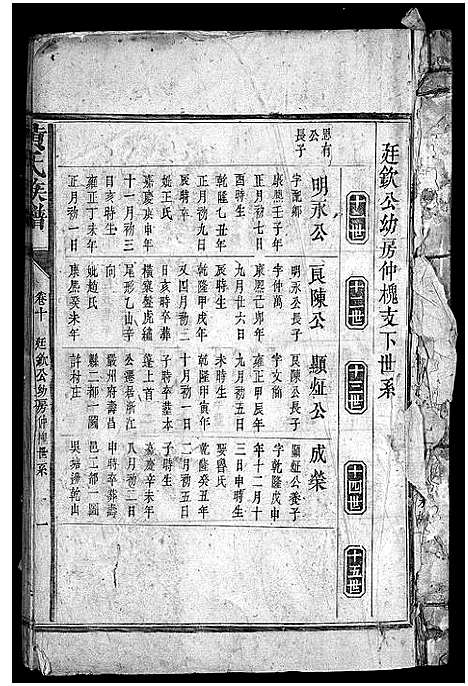 廷欽公幼房仲槐支下世系
十一世
十二世
十三世
十四世
十五世
恩有
公
長子
明永公
字配卿
康熙壬子年
正月初七日
酉時生
乾隆乙丑年
正月初九日
辰時卒
娶王氏
嘉慶庚申年
十一月初三
日亥時生
雍正丁未年
正月初一日
良陳公
明永公長子
字仲萬
康熙己卯年
九月廿六日
辰時生
乾隆甲戌年
又四月初三
日亥時卒葬
橫塞盤虎繡
尾形乙山辛
向
妣趙氏
康熙癸未年
顯烓公
良陳公長子
字文簡
雍正甲辰年
九月初五日
未時生
乾隆甲寅年
十月初一日
子時卒葬本
蓬上首
公遷居浙江
嚴州府壽昌
縣二都一圖
許村庄
成榮
顯烓公養子
字乾隆戊申
年十二月十
三日申時生
娶魯氏
乾隆癸丑年
二月初五日
子時生
嘉慶辛未年
八月初二日
申時卒葬壽
邑二都一圖
吳塘湴乾山
黃氏族譜
卷十
廷欽公幼房仲槐世系
一